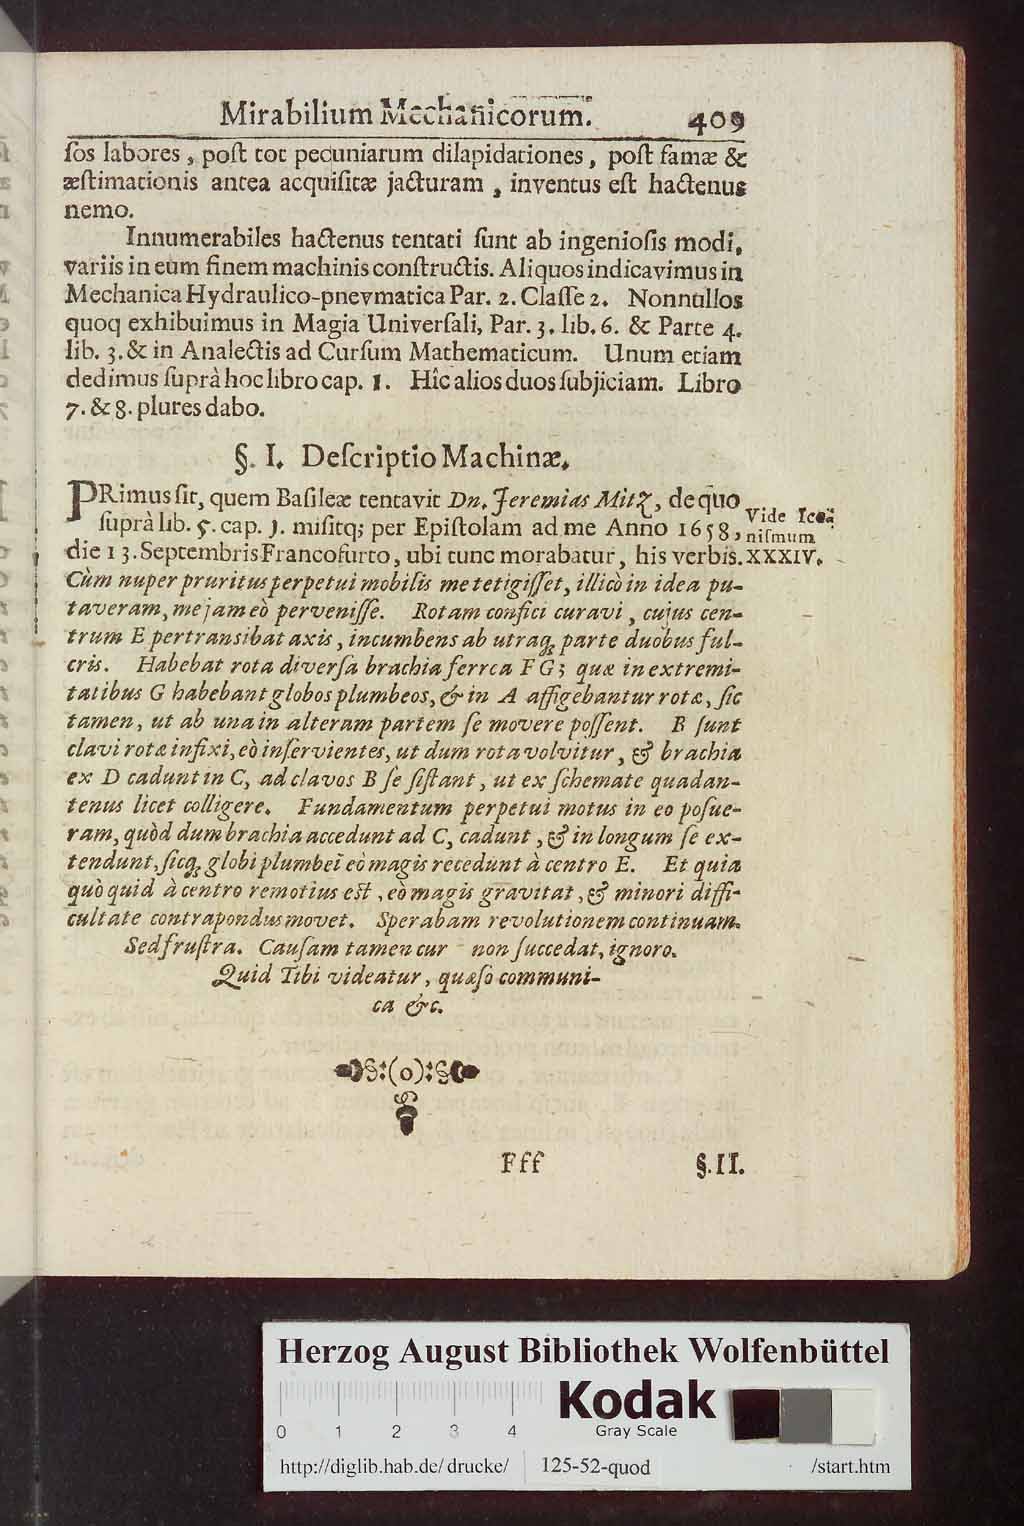 Mirabilium Mechanicorum. 409
ſos labores, poſt tot pecuniarum dilapidationes, poſt famæ &
æſtimationis antea acquiſitæ jacturam, inventus eſt hactenus
nemo.
Innumerabiles hactenus tentati ſunt ab ingenioſis modi,
variis in eum finem machinis conſtructis. Aliquos indicavimus in
Mechanica Hydraulico-pnevmatica Par. 2. Claſſe 2. Nonnullos
quoq exhibuimus in Magia Univerſali, Par. 3. lib. 6. & Parte 4.
lib. 3. & in Analectis ad Curſum Mathematicum. Unum etiam
dedimus ſuprà hoc libro cap. 1. Hîc alios duos ſubjiciam. Libro
7. & 8. plures dabo.
§. I. Deſcriptio Machinæ.
PRimus ſit, quem Baſileæ tentavit Dn. Jeremias Mitz, de quo
ſuprà lib. 5. cap. 1. miſitq; per Epiſtolam ad me Anno 1658,
die 13. Septembris Francofurto, ubi tunc morabatur, his verbis.
Vide Icoã
niſmum
XXXIV.
Cùm nuper pruritus perpetui mobilis me tetigiſſet, illicò in idea pu-
taveram, me jam eò perveniſſe. Rotam confici curavi, cujus cen-
trum E pertransibat axis, incumbens ab utraq; parte duobus ful-
cris. Habebat rota diverſa brachia ferrea F G; quæ in extremi-
tatibus G habebant globos plumbeos, & in A affigebantur rotæ, ſic
tamen, ut ab una in alteram partem ſe movere poſſent. B ſunt
clavi rotæ infixi, eò inſervientes, ut dum rota volvitur, & brachia
ex D cadunt in C, ad clavos B ſe ſiſtant, ut ex ſchemate quadan-
tenus licet colligere. Fundamentum perpetui motus in eo poſue-
ram, quòd dum brachia accedunt ad C, cadunt, & in longum ſe ex-
tendunt, ſicq; globi plumbei eò magis recedunt à centro E. Et quia
quò quid à centro remotius eſt, eò magis gravitat, & minori diffi-
cultate contrapondus movet. Sperabam revolutionem continuam.
Sed fruſtra. Cauſam tamen cur non ſuccedat, ignoro.
Quid Tibi videatur, quæſo communi-
ca &c.
§:(o):§
Fff §. II.
Herzog August Bibliothek Wolfenbüttel
0 1 2 3 4
Kodak
Gray Scale
http://diglib.hab.de/drucke/ 125-52-quod /start.htm